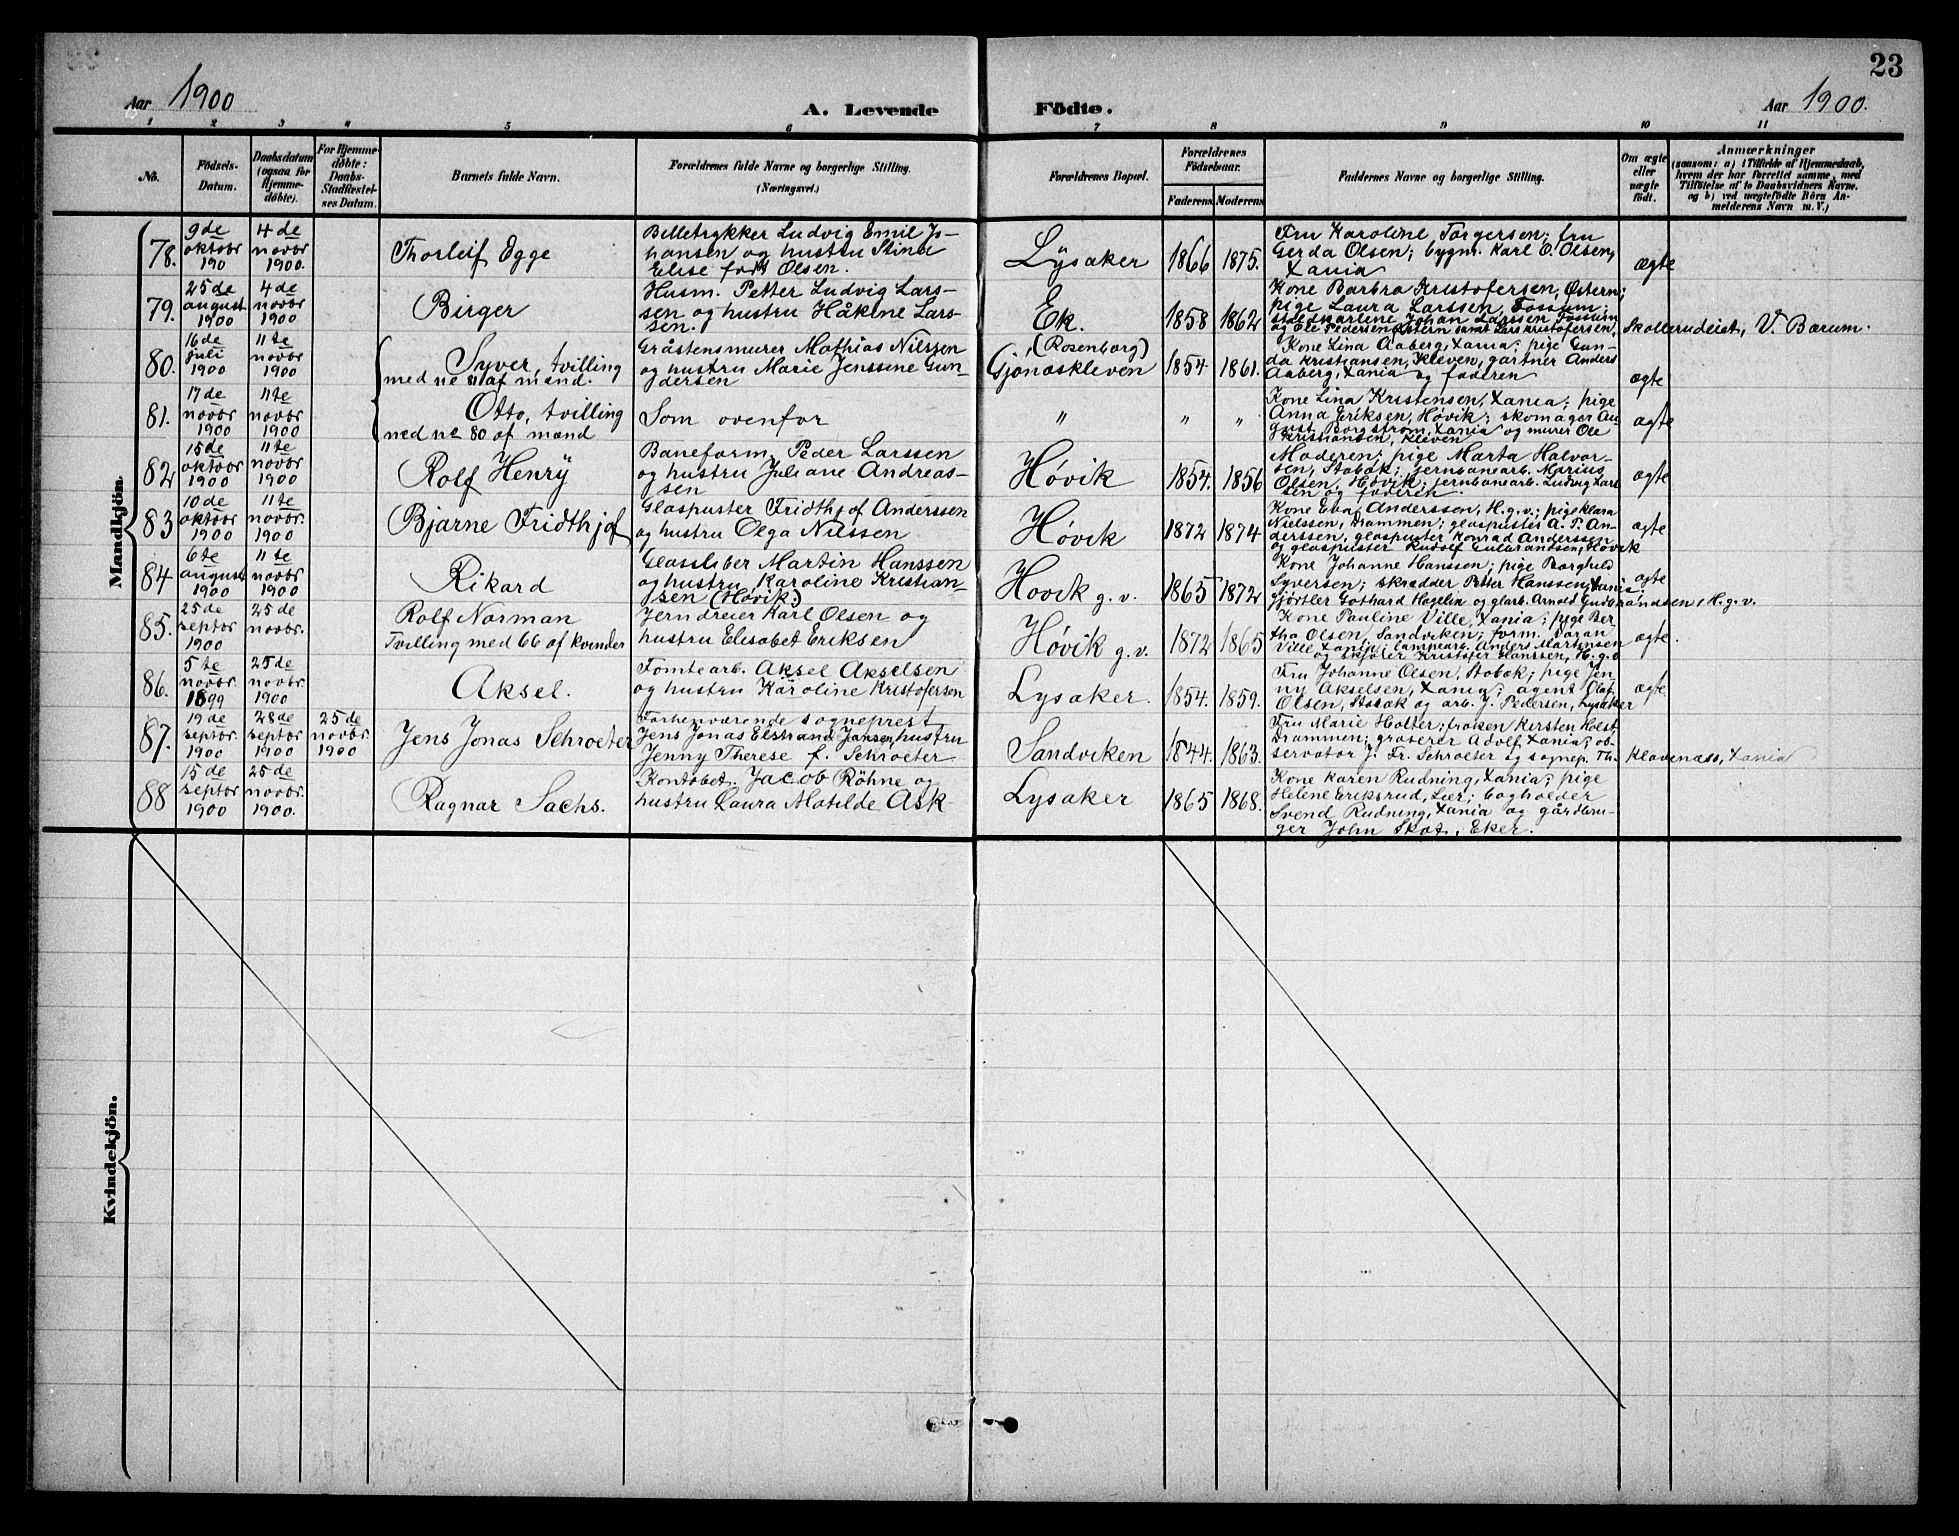 23
Aar 1900
A. Levende Födte.
Aar 1900.
1 2 3 4 5 6 7 8 9 10 11
No.
Födsels-
Datum.
Daabsdatum
(ogsaa for
Hjemme-
döbte).
For Hjemme-
döbte:
Daabs-
Stadfæstel-
ses Datum.
Barnets fulde Navn.
Forældrenes fulde Navne og borgerlige Stilling.
(Næringsvei.)
Forældrenes Bopæl.
Forældrenes
Födselsaar.
Faderens Moderens
Faddernes Navne og borgerlige Stilling.
Om ægte
eller
uægte
födt.
Anmærkninger
(saasom: a) i Tilfælde af Hjemmedaab,
hvem der har forrettet samme, med
Tilföielse af to Daabsvidners Navne,
og b) ved uægtefödte Börn An-
melderens Navn m. V.)
Mandkjön.
78.
9de
oktobr
190
4de
novbr
1900.
Thorleif Egge
Billetrykker Ludvig Emil Jo-
hansen og hustru Stina
Elise født Olsen.
Lysaker
1866 1875.
Fru Karoline Torgersen; fru
Gerda Olsen; bygm. Karl O. Olsen,
Xania
ægte
79.
25de
august
1900
4de
novbr
1900
Birger
Husm. Petter Ludvig Lars-
sen og hustru Håkine Lars-
sen.
Ek.
1858 1862
Kone Barbra Kristofersen, Østern;
pige Laura Larssen, Fossum
Johan Larssen Fossum
og Ole Pedersen Østern samt Lars Kristofersen,
Skollerudeist, V. Bærum.
80.
16de
juli
1900
11te
novbr
1900
Syver, tvilling
med no 81 af mænd.
Gråstensmurer Mathias Nilssen
og hustru Marie Jenssine Gun-
dersen
(Rosenborg)
Gjønnaskleven
1854 1861.
Kone Lina Aaberg, Xania; pige Gun-
da Kristiansen, Kleven, gartner Anders
Aaberg, Xania og faderen
ægte
81.
17de
novbr
1900
11te
novbr
1900
Otto, tvilling
med no 80 af mænd
Som ovenfor
" " "
Kone Lina Kristensen, Xania; pige
Anna Eriksen, Høvik; skomager Au-
gust Borgstrøm, Xania og murer Ole
Kristiansen, Kleven
ægte
82
15de
oktobr
1900
11te
novbr
1900
Rolf Henry
Baneform. Peder Larssen
og hustru Juliane Andreas-
sen
Høvik
1854. 1856
Moderen; pige Marta Halvor-
sen, Stabæk; jernbanearb. Marius
Olsen, Høvik; jernbanearb. Ludvig Lars-
sen og faderen.
ægte
83
10de
oktobr
1900
11te
novbr.
1900
Bjarne Fridthjof
Glaspuster Fridthjof Anderssen
og hustru Olga Nilssen
Høvik
1872 1874
Kone Eva Anderssen, H.g.v.; pige Klara
Nielssen, Drammen; glaspuster A. T. An-
derssen, glaspuster Konrad Anderssen
og glaspuster Rudolf Gulbrandsen, Høvik
ægte
84
6te
august
1900
11te
novbr
1900
Rikard
Glassliber Martin Hanssen
og hustru Karoline Kristian-
sen (Høvik.)
Høvik g. v.
1865 1872
Kone Johanne Hanssen; pige Borghild
Syversen; skrædder Petter Hanssen, Xania.
gjørtler Gothard Hagelin og glarb. Arnold Gudbrandsen, H. g. v.
ægte
85.
25de
septbr
1900
25de
novbr.
Rolf Norman
Tvilling med 66 af kvinder
Jerndreier Karl Olsen og
hustru Elisabet Eriksen
Høvik g. v.
1872 1865
Kone Pauline Ville, Xania; pige Ber-
tha Olsen, Sandviken; form. Johan
Ville Xania; lampearb. Anders Martinsen
og skjøler Kristofer Hanssen, H. g. v
ægte.
86.
5te
novbr.
1899
25de
novbr.
1900
Aksel.
Tomtearb. Aksel Akselsen
og hustru Karoline Kristofersen
Lysaker.
1854. 1859.
Fru Johanne Olsen, Stabæk; pige Jen-
ny Akselsen, Xania; agent Olaf
Olsen, Stabæk og arb. J. Pedersen, Lysaker
ægte
87.
19de
septbr.
1900
28de
septbr.
1900
25de
novbr.
1900
Jens Jonas Schroeter
Forhenværende sogneprest
Jens Jonas Elstrand Jansen, hustru
Jenny Therese f. Schroeter
Sandviken
1844. 1863.
Fru Marie Holter; frøken Kirsten Holst,
Drammen; groserer Adolf, Xania; ob-
servator J. Fr. Schroeter og sognep. Th.
Klaveness, Xania
88
15de
septbr
1900
25de
novbr.
1900.
Ragnar Sachs.
Kontobet. Jacob Röhne og
hustru Laura Matilde Ask
Lysaker
1865 1868.
Kone Karen Rudning, Xania; pige
Helene Eriksrud, Lier; bogholder
Svend Rudning, Xania og gårdbru-
ger John Skot, Eker.
Kvindekjön.